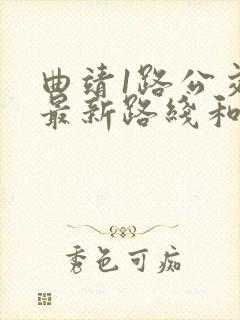 曲靖1路公交
最新路线和
秀色可痴